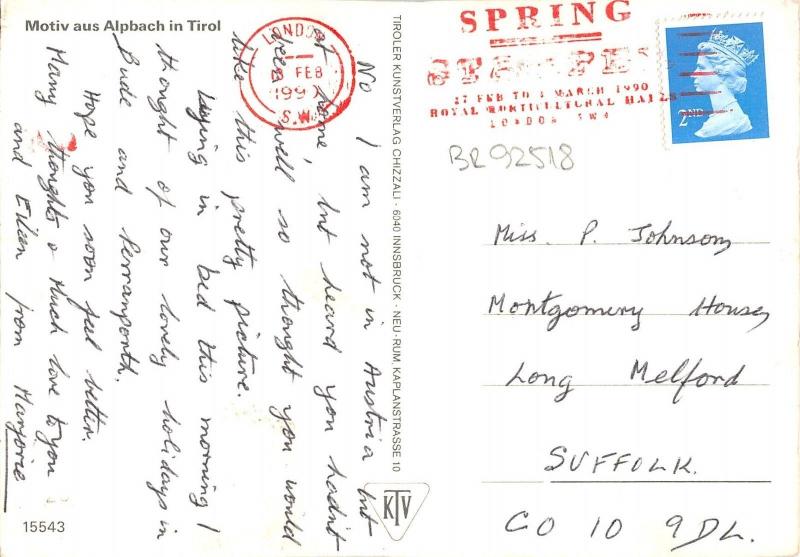 Motiv aus Alpbach in Tirol
No I am not in Austria but
at home, but heard you hadn't
been well so thought you would
like this pretty picture.
Laying in bed this morning I
thought of our lovely holidays in
Bude and Perranporth.
Hope you soon feel better.
Many thoughts & Much love to you
and Eileen from Marjorie
15543
TIROLER KUNSTVERLAG CHIZZALI · 6040 INNSBRUCK - NEU-RUM KAPLANSTRASSE 10
KTV
LONDON
FEB
199
S.W
SPRING
27 FEB TO 4 MARCH 1990
ROYAL HORTICULTURAL HALLS
LONDON SW1
2ND
BR92518
Miss. P. Johnson,
Montgomery House,
Long Melford
SUFFOLK.
CO 10 9DL.